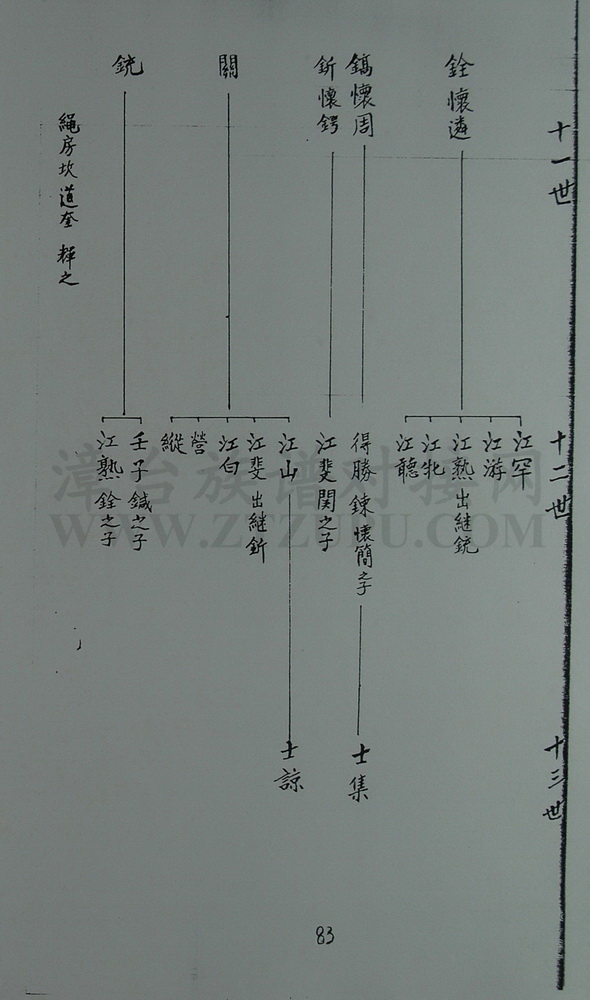 十一世
銓懷遴
鎬懷周
釿懷鍔
關
銃
繩房坎道奎 輝之
十二世
江罕
江游
江熟出継銃
江牝
江聽
得勝 鍊懷簡之子
江斐関之子
江山
江斐出継釿
江白
營
縱
壬子鍼之子
江熟銓之子
十三世
士集
士諒
漳台族谱对接网
WWW.ZTZUPU.COM
83